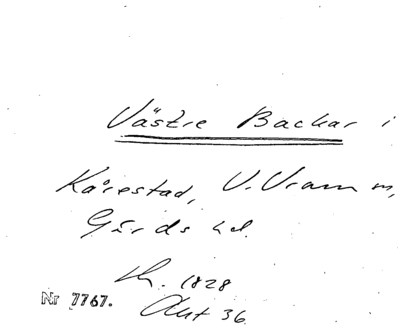 Västre Backar i
Kårestad, V. Vram m,
Gärds hd.
th. 1828
Akt 36
Nr 7767.